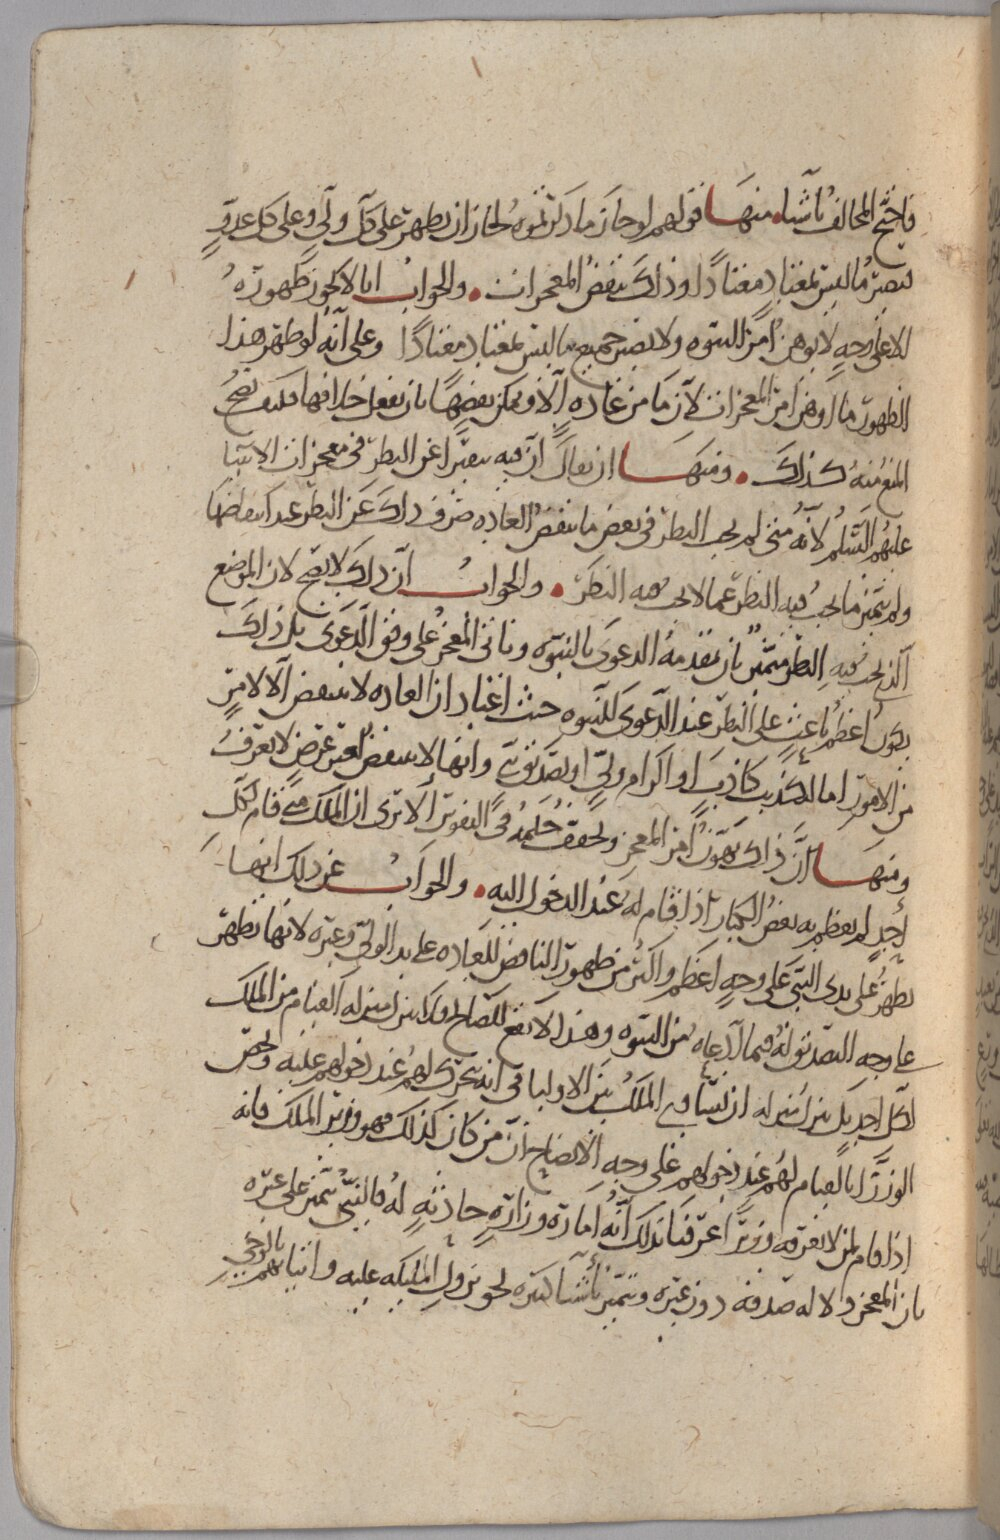 فاحتج المخالف بأشياء منها قولهم لو جاز ما ذكرتموه لجاز ان يظهر على كل ولي وعلى كل عدو
فيصير ما ليس بمعتاد معتادًا وذلك ينقض المعجزات • والجواب انا لا نجوز ظهوره
الا على وجه لا يوهن امر النبوه ولا يصير جميع ما ليس بمعتاد معتادًا وعلى أنه لو ظهر هذا
الظهور ما أوهن امر المعجزات لأن ما من عاده الا ويمكن نقضها بان يفعل خلافها فكيف يصح
المنع منه كذلك • ومنها ان يقال ان فيه تنفيرا عن النظر في معجزات الانبيا
عليهم السلم لأنه متى لم يجب النظر في بعض ما ينقض العاده صرف ذلك عن النظر عند انتقاضها
ولم يتميز ما يجب فيه النظر عما لا يجب فيه النظر • والجواب ان ذلك لا يصح لان الموضع
الذي يجب فيه النظر متميز بان تقدمه الدعوى بالنبوه وياتي المعجز على وفق الدعوى بل ذلك
يكون اعظم باعث على النظر عند الدعوى للنبوه حيث اعتاد ان العاده لا تنتقض الا لامر
من الامور اما لتكذيب كاذب او اكرام ولي او تصديق نبي وانها لا تنتقض لغير غرض لا يعرف
ومنها ان ذلك يهون امر المعجز ويخفف حكمه في النفوس الا ترى ان الملك متى قام لكل
احد لم يعظم به بعض الكبار اذا قام له عند الدخول اليه • والجواب عن ذلك انها
تظهر على يدي النبي على وجه اعظم واكثر من ظهور الناقض للعاده على يد الولي وغيره لانها تظهر
على وجه التصديق له فيما ادعاه من النبوه وهذا لا يقع للصالح فلا ينزل منزله القيام من الملك
لكل احد بل ينزل منزله ان يساوي الملك بين الاوليا في انه يتحرك لهم عند دخولهم عليه ويخص
الوزرا بالقيام لهم عند دخولهم على وجه الايضاح ان من كان كذلك فهو وزير الملك فانه
اذا قام لمن لا نعرفه وزيرًا عرفنا بذلك أنه امارة وزارة حادثه له فالنبي يتميز على غيره
بان المعجز دلاله صدقه دون غيره ويتميز بأشيا كثيره نحو نزول المليكه عليه واتيانهم بالوحي